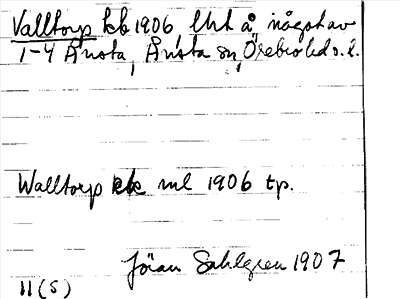 Valltorp kb 1906, lht å något av
1-4 Ånsta, Ånsta sn, Örebro hd o. l.
Walltorp kb ml 1906 tp.
Jöran Sahlgren 1907
11(S)